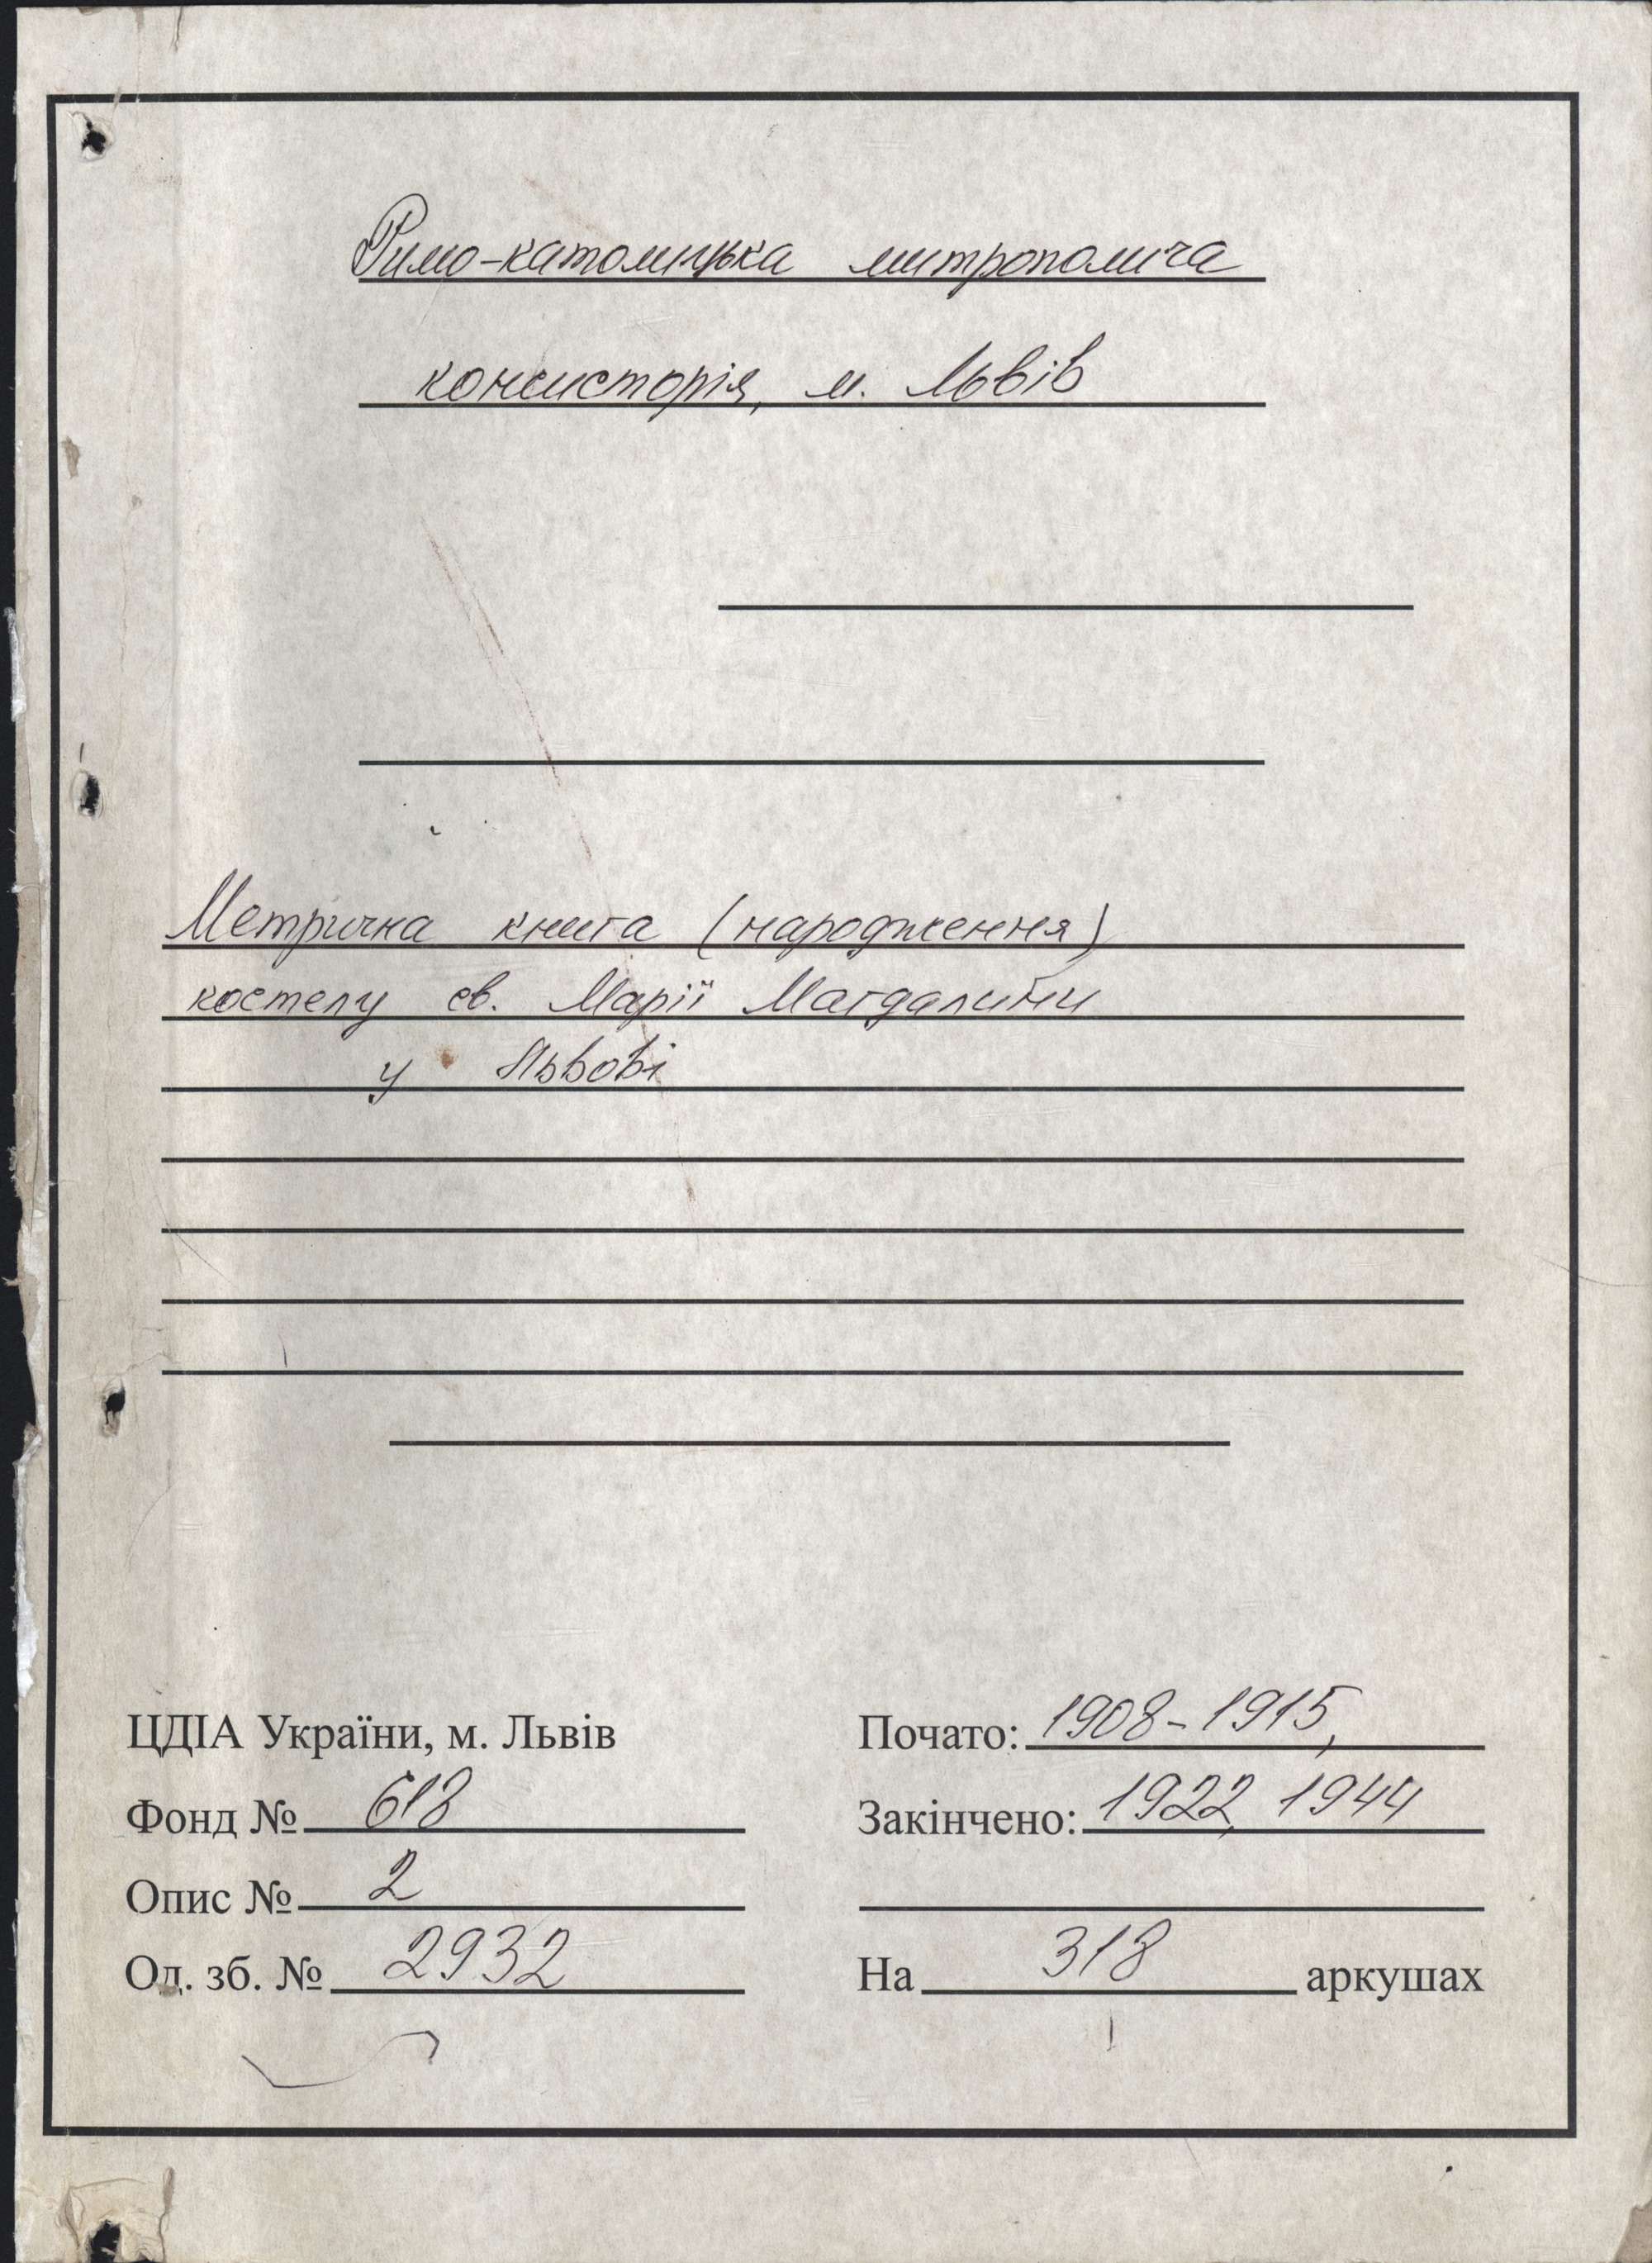 Римо-католицька митрополича
консисторія, м. Львів
Метрична книга (народження)
костелу св. Марії Магдалини
у Львові
ЦДІА України, м. Львів
Фонд № 618
Опис № 2
Од. зб. № 2932
Почато: 1908-1915,
Закінчено: 1922, 1944
На 318 аркушах